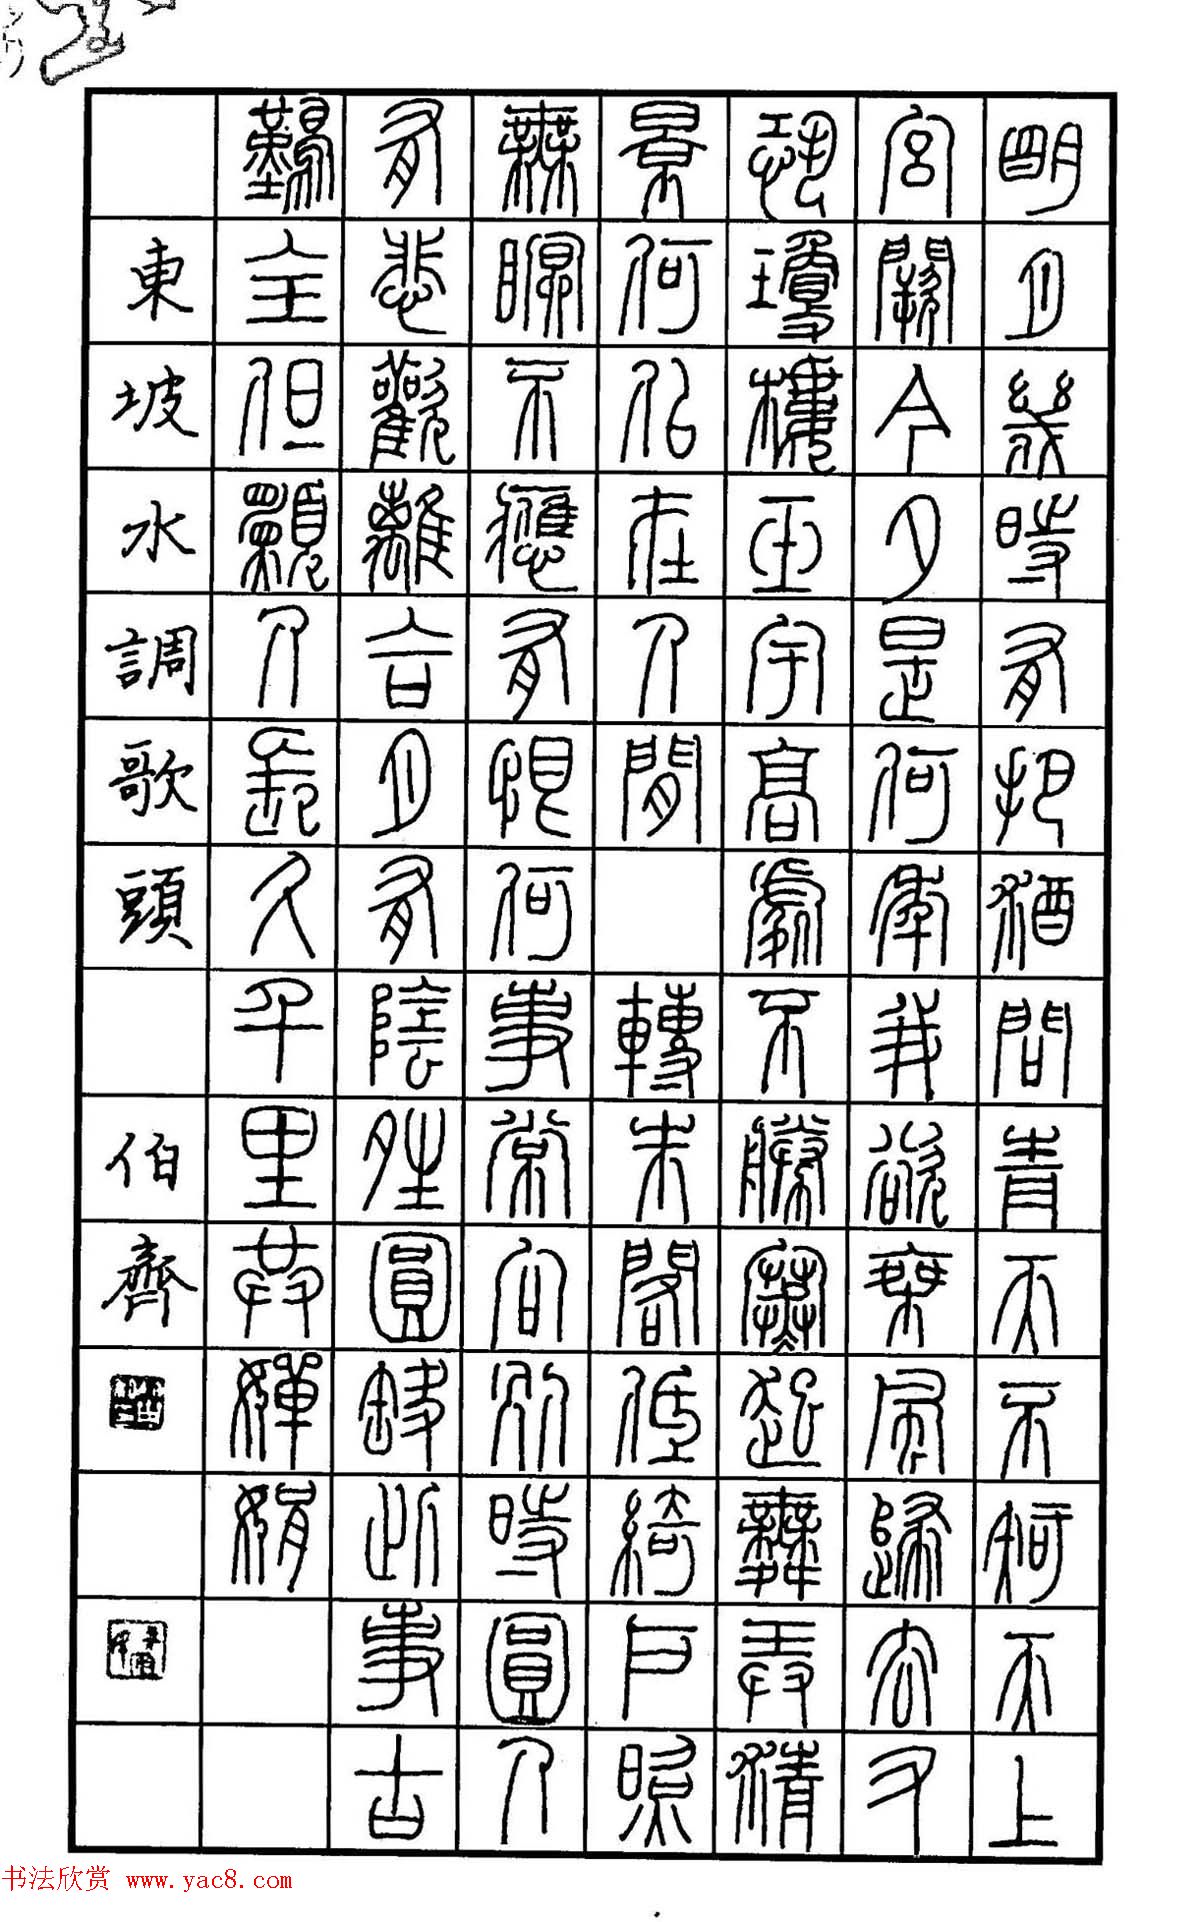 明月幾時有把酒問青天不知天上
宮闕今夕是何年我欲乘風歸去又
恐瓊樓玉宇高處不勝寒起舞弄清
景何似在人間 轉朱閣低綺戶照
無眠不應有恨何事常向別時圓人
有悲歡離合月有陰晴圓缺此事古
難全但願人長久千里共嬋娟
東坡水調歌頭 伯齊
书法欣赏 www.yac8.com